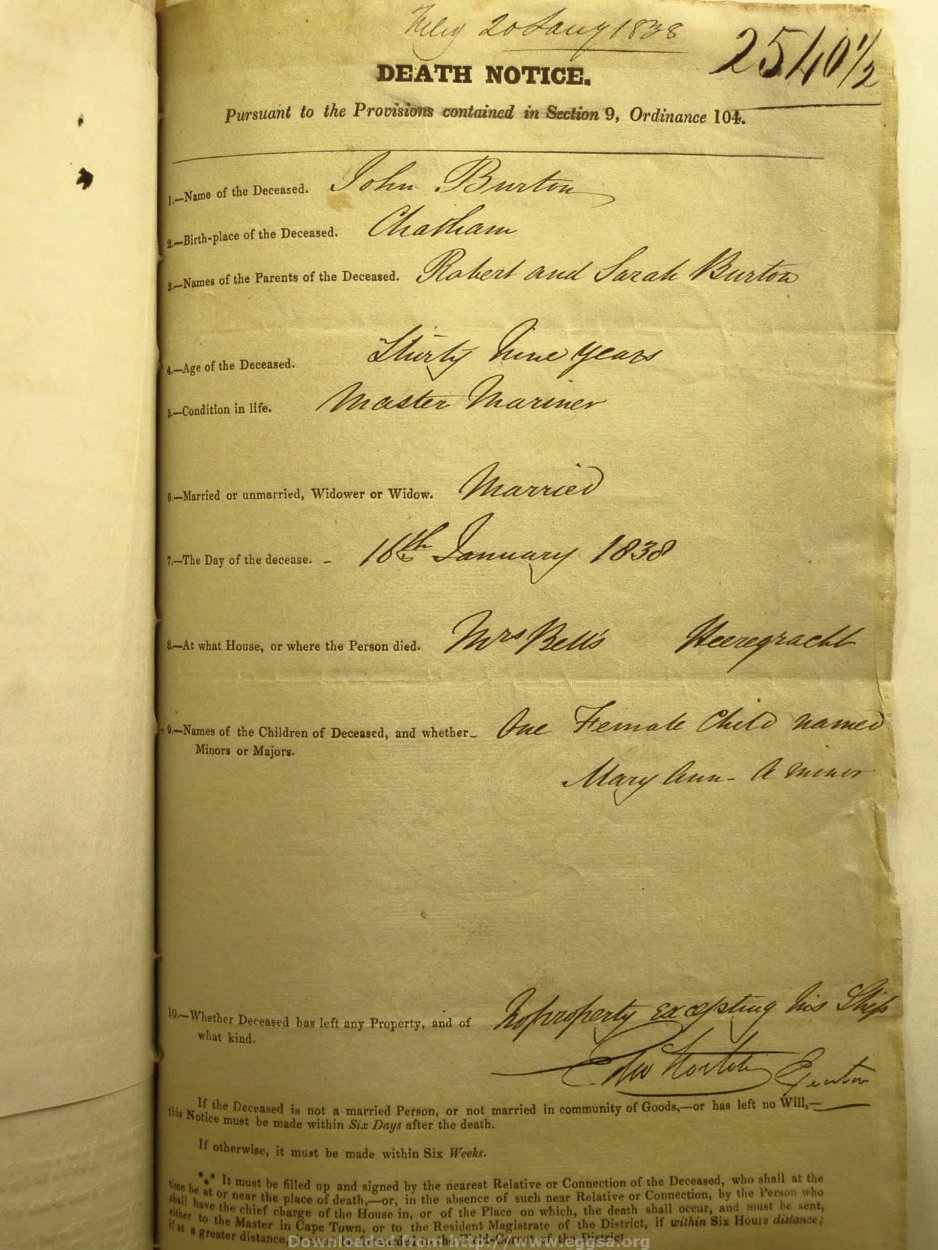 20 Jany 1838
2540 1/2
DEATH NOTICE.
Pursuant to the Provisions contained in Section 9, Ordinance 104.
1.—Name of the Deceased. John Burton
2.—Birth-place of the Deceased. Chatham
3.—Names of the Parents of the Deceased. Robert and Sarah Burton
4.—Age of the Deceased. Thirty Nine years
5.—Condition in life. Master Mariner
6.—Married or unmarried, Widower or Widow. Married
7.—The Day of the decease. - 16th January 1838
8.—At what House, or where the Person died. Mrs Bell's Heeregracht
9.—Names of the Children of Deceased, and whether One Female Child named
Minors or Majors. Mary Ann - A minor
10.—Whether Deceased has left any Property, and of No property excepting his Ship
what kind.
If the Deceased is not a married Person, or not married in community of Goods,—or has left no Will,—
this Notice must be made within Six Days after the death.
If otherwise, it must be made within Six Weeks.
*** It must be filled up and signed by the nearest Relative or Connection of the Deceased, who shall at the
time be at or near the place of death,—or, in the absence of such near Relative or Connection, by the Person who
shall have the chief charge of the House in, or of the Place on which, the death shall occur, and must be sent,
either to the Master in Cape Town, or to the Resident Magistrate of the District, if within Six Hours distance;
if at a greater distance, of the District
Downloaded from http://www.eggsa.org